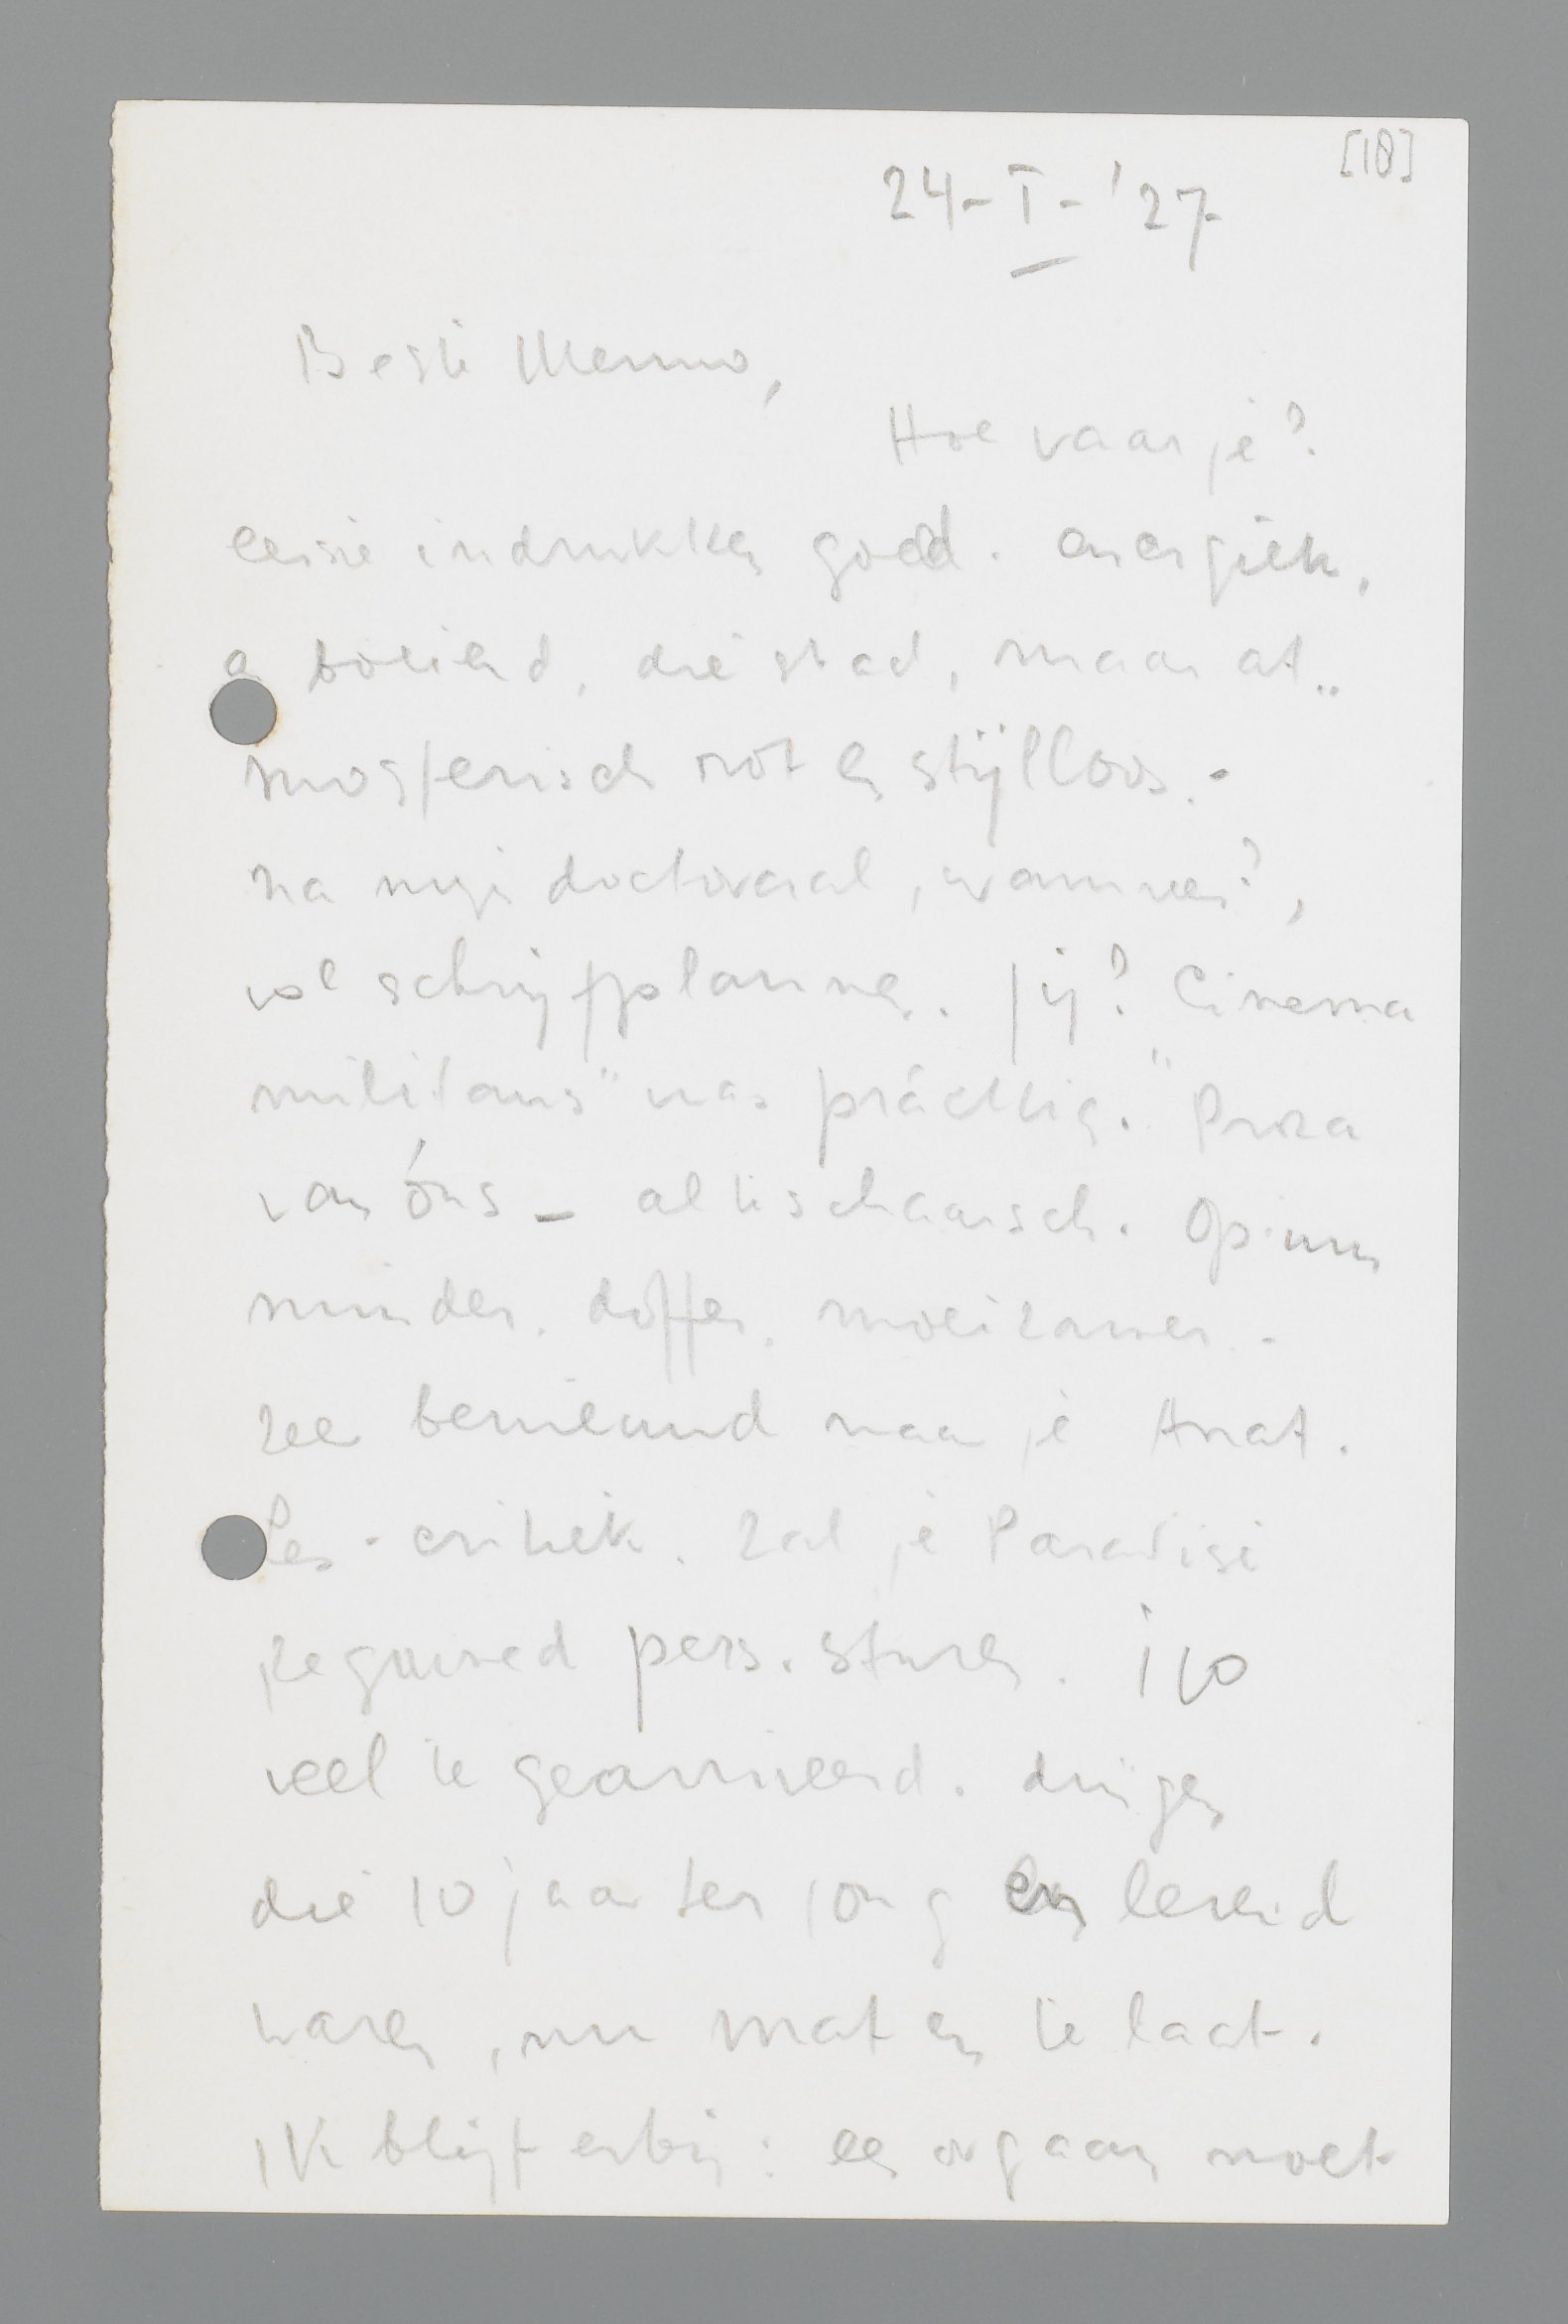 [18]
24-I-'27
Beste Menno,
Hoe vaar je?
eerste indrukken goed. energiek,
en boeiend, die stad, maar at„
mosferisch rot en stijlloos.-
na mijn doctoraal, wanneer?,
vol schrijfplannen. jij? Cinema
militans" was prachtig. "Proza
van óns - al te schaarsch. Opium
minder. doffer. moeizamer.-
zeer benieuwd naar je Anat.
Les-critiek. zal je Paradise
Regained pers. sturen. i 10
veel te gearriveerd. dingen
die 10 jaar her jong en levend
waren, nu mat en te laat.
ik blijf erbij: een orgaan moet